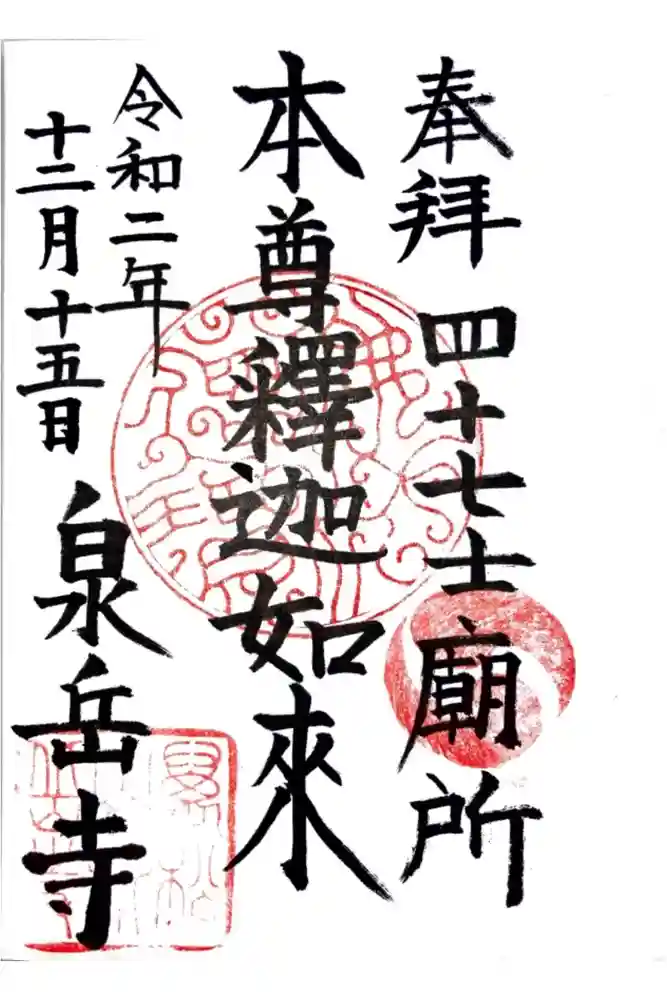 奉拝 四十七士廟所
本尊釋迦如來
令和二年
十二月十五日
泉岳寺